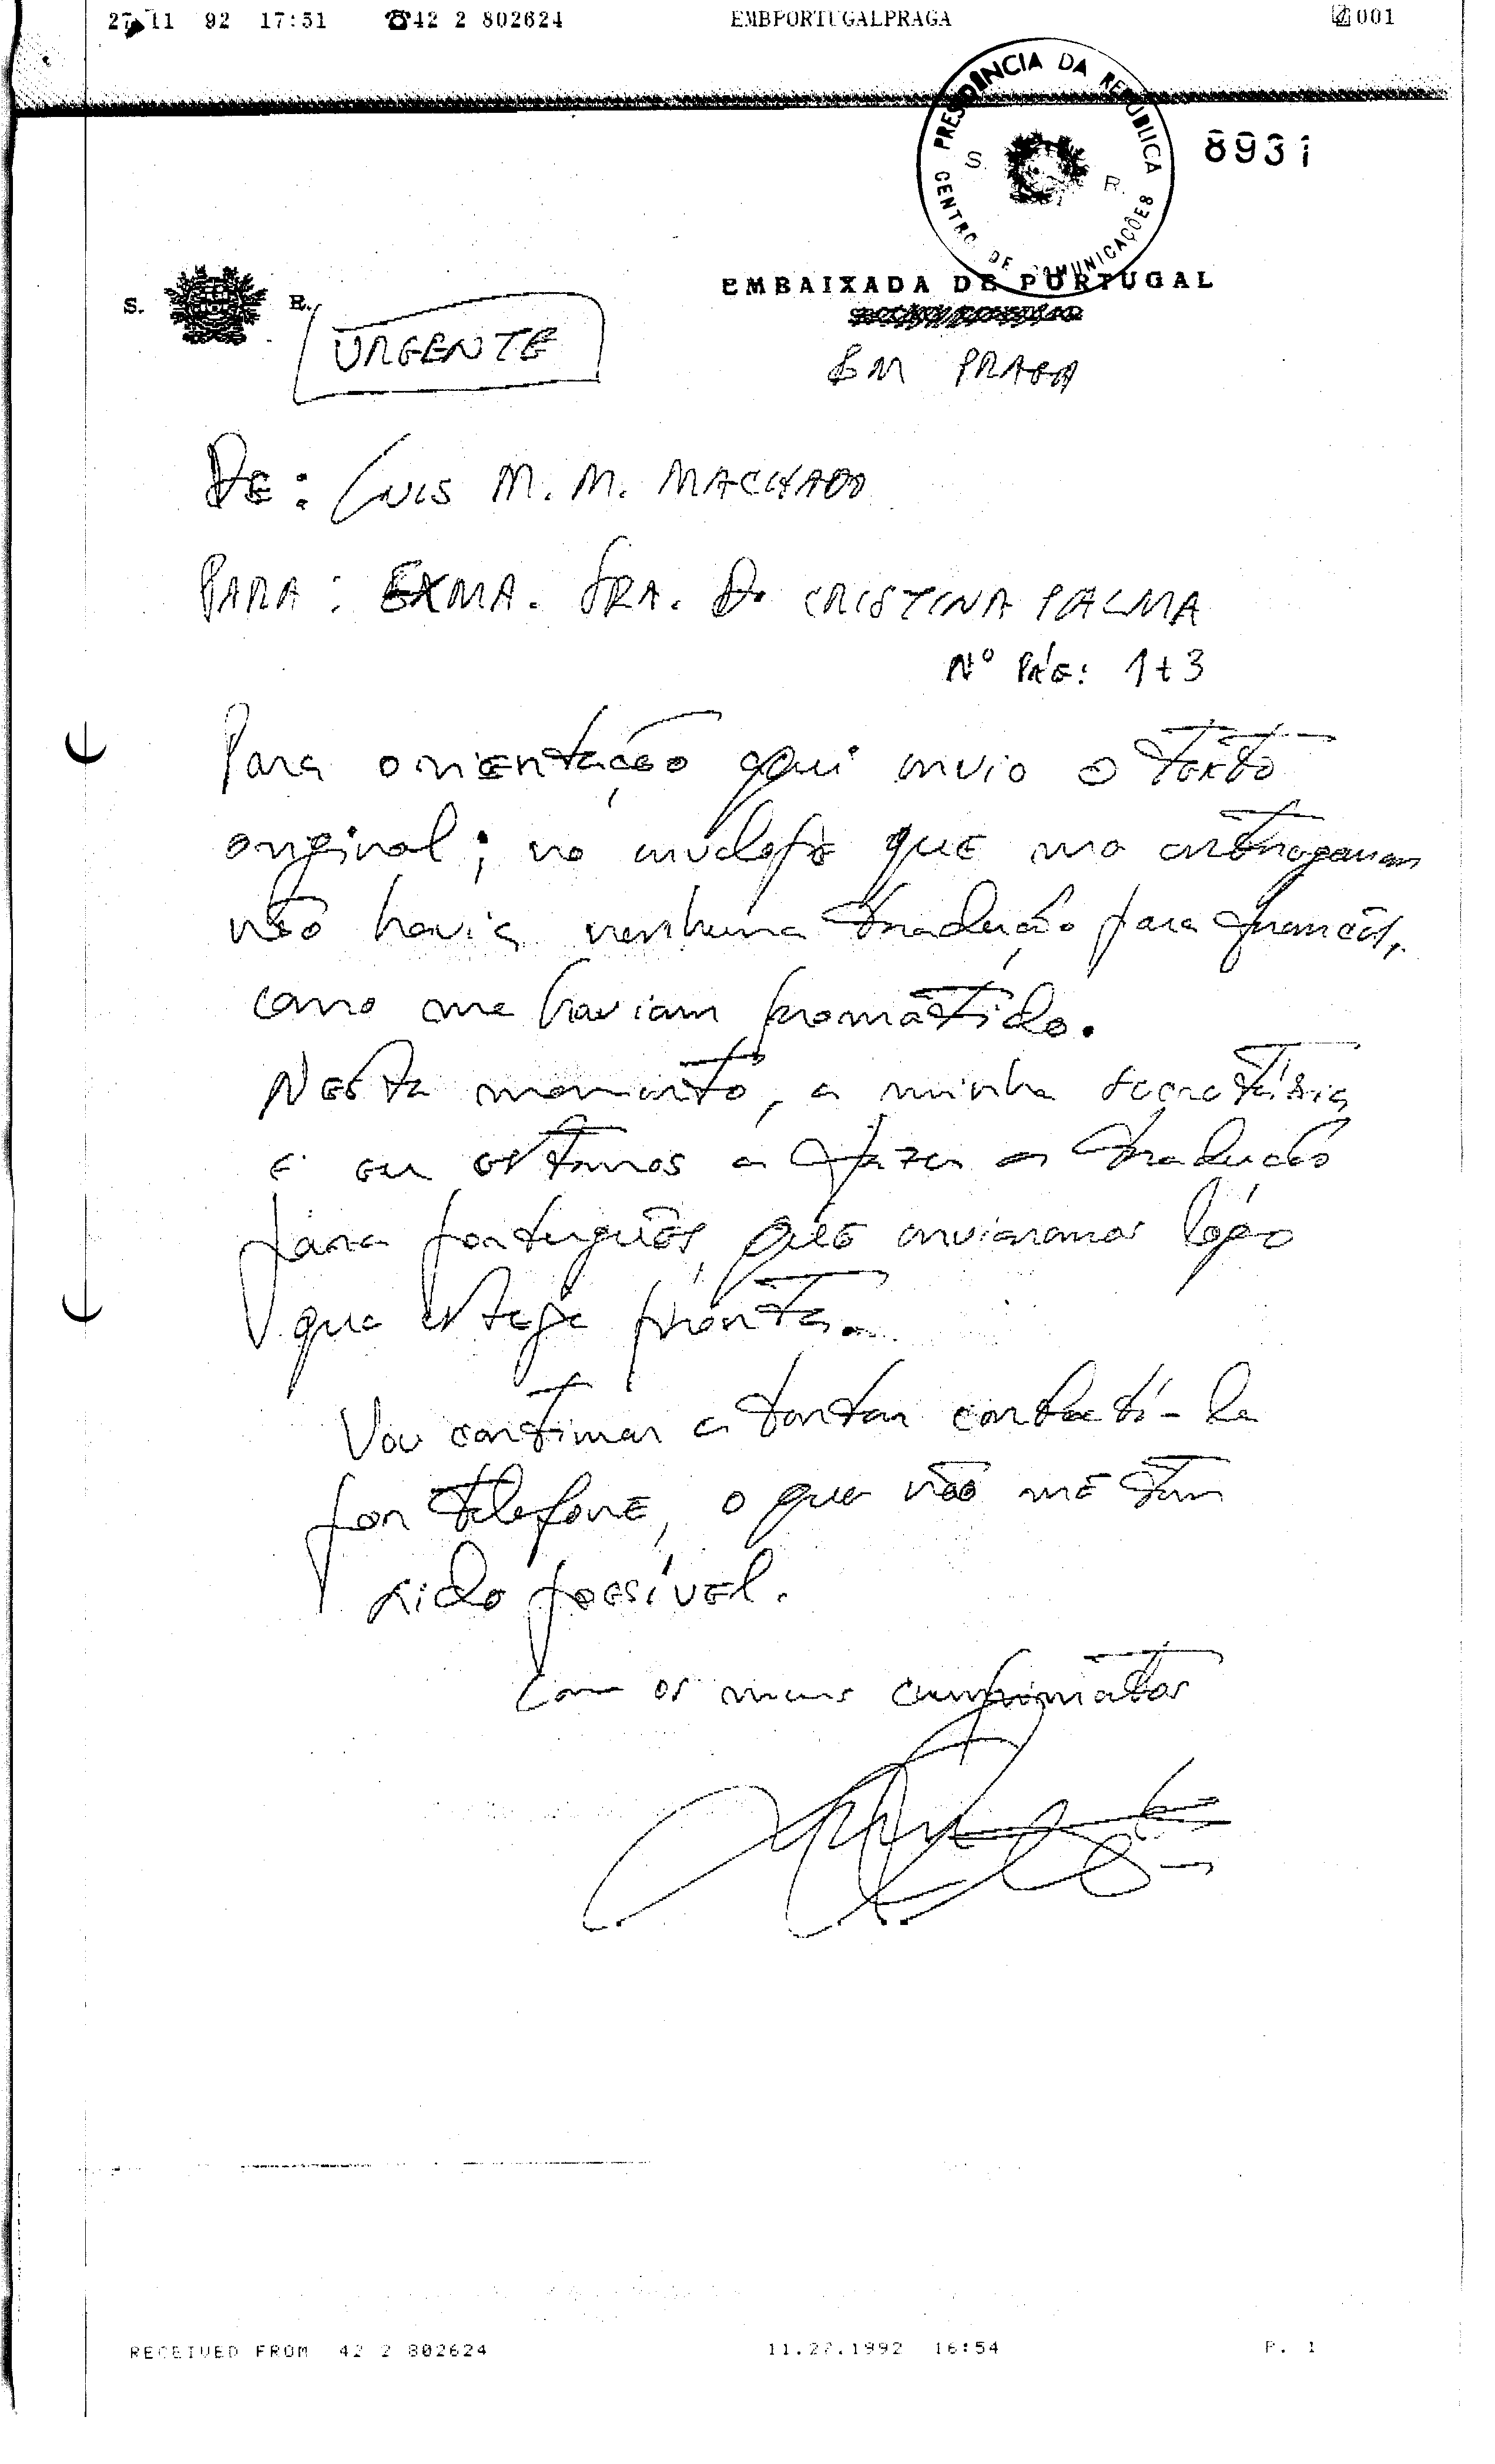 27 11 92 17:51 ☎42 2 802624 EMBPORTUGALPRAGA 001
PRESIDÊNCIA DA REPÚBLICA
S. R.
CENTRO DE COMUNICAÇÕES
8931
S. R.
EMBAIXADA DE PORTUGAL
SECÇÃO CONSULAR
URGENTE
EM PRAGA
DE: LUIS M. M. MACHADO
PARA: EXMA. SRA. D. CRISTINA PALMA
Nº PÁG: 1+3
Para orientação aqui envio o texto
original; no envelope que me entregaram
não havia nenhuma tradução para francês,
como me haviam prometido.
Neste momento, a minha secretária
e eu estamos a fazer a tradução
para português, que enviaremos logo
que esteja pronta.
Vou continuar a tentar contactá-la
por telefone, o que não me tem
sido possível.
Com os meus cumprimentos
RECEIVED FROM 42 2 802624 11.27.1992 16:54 P. 1